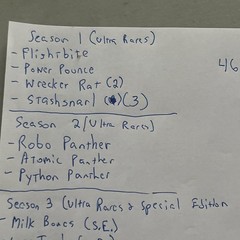 Season 1 (Ultra Rares)
- Flightbite
- Power Pounce
46
- Wrecker Rat (2)
- Stashsnarl (3)
Season 2 (Ultra Rares)
- Robo Panther
- Atomic Panther
- Python Panther
Season 3 (Ultra Rares & Special Edition
- Milk Bones (S.E.)